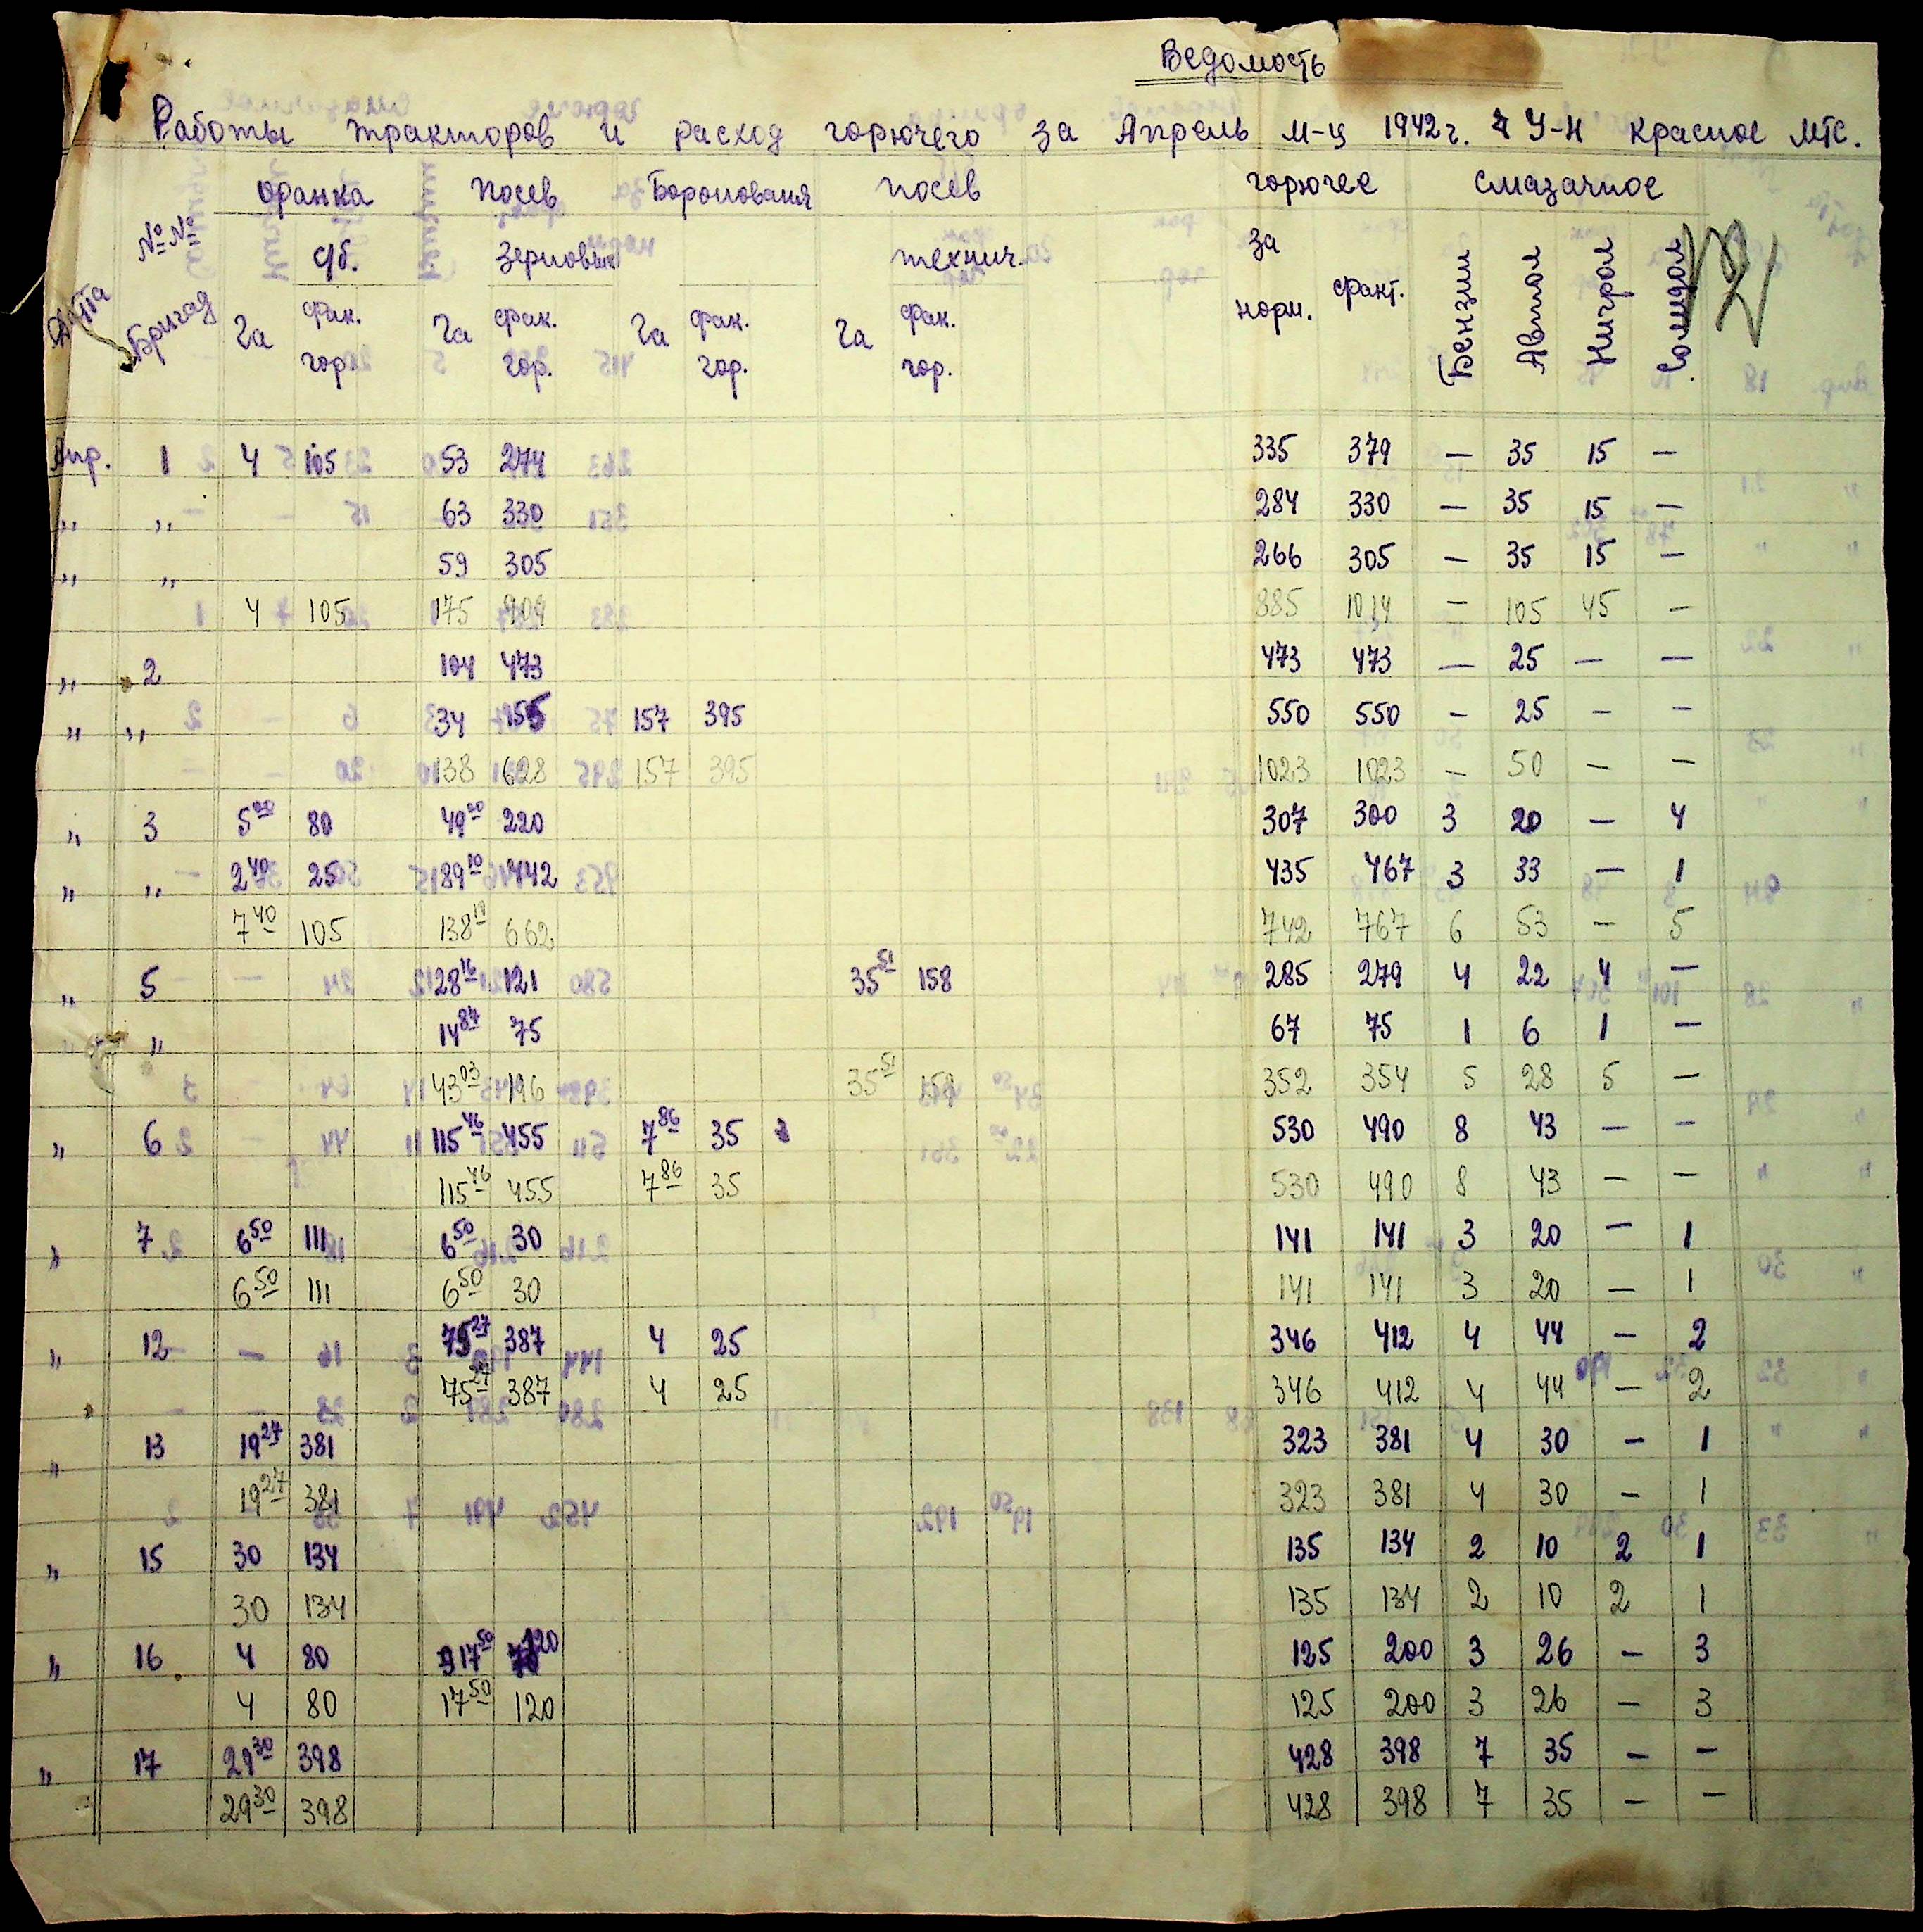 Ведомость
Работы тракторов и расход горючего за Апрель м-ц 1942 г. У-Н Красное МТС.
№№ оранка посев Боронования посев горючее смазачное
Дата Бригад с/б. зерновых технич. за норм. факт. Бензин Автол Нигрол Солидол
Га фак. гор. Га фак. гор. Га фак. гор. Га фак. гор.
Апр. 1 4 105 53 274 335 379 — 35 15 —
„ „ 63 330 284 330 — 35 15 —
„ „ 59 305 266 305 — 35 15 —
4 105 175 909 885 1014 — 105 45 —
„ 2 104 473 473 473 — 25 — —
„ „ 34 155 157 395 550 550 — 25 — —
138 628 157 395 1023 1023 — 50 — —
„ 3 5 80 49 220 307 300 3 20 — 4
„ „ 2 40 25 89 10 442 435 467 3 33 — 1
7 40 105 138 10 662 742 767 6 53 — 5
„ 5 28 16 121 35 51 158 285 279 4 22 4 —
„ „ 14 87 75 67 75 1 6 1 —
43 03 196 35 51 158 352 354 5 28 5 —
„ 6 115 46 455 7 86 35 530 490 8 43 — —
115 46 455 7 86 35 530 490 8 43 — —
„ 7 6 50 111 6 50 30 141 141 3 20 — 1
6 50 111 6 50 30 141 141 3 20 — 1
„ 12 75 27 387 4 25 346 412 4 44 — 2
75 27 387 4 25 346 412 4 44 — 2
„ 13 19 27 381 323 381 4 30 — 1
19 27 381 323 381 4 30 — 1
„ 15 30 134 135 134 2 10 2 1
30 134 135 134 2 10 2 1
„ 16 4 80 17 50 120 125 200 3 26 — 3
4 80 17 50 120 125 200 3 26 — 3
„ 17 29 30 398 428 398 7 35 — —
29 30 398 428 398 7 35 — —